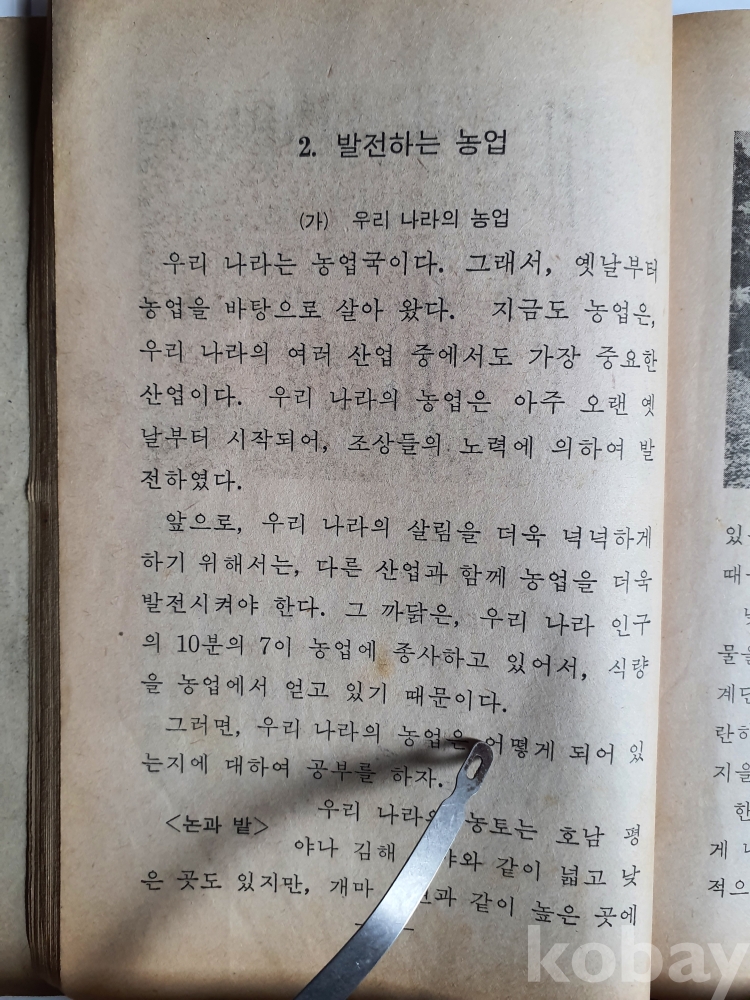 2. 발전하는 농업
(가) 우리 나라의 농업
우리 나라는 농업국이다. 그래서, 옛날부터
농업을 바탕으로 살아 왔다. 지금도 농업은,
우리 나라의 여러 산업 중에서도 가장 중요한
산업이다. 우리 나라의 농업은 아주 오랜 옛
날부터 시작되어, 조상들의 노력에 의하여 발
전하였다.
앞으로, 우리 나라의 살림을 더욱 넉넉하게
하기 위해서는, 다른 산업과 함께 농업을 더욱
발전시켜야 한다. 그 까닭은, 우리 나라 인구
의 10분의 7이 농업에 종사하고 있어서, 식량
을 농업에서 얻고 있기 때문이다.
그러면, 우리 나라의 농업은 어떻게 되어 있
는지에 대하여 공부를 하자.
<논과 밭> 우리 나라의 농토는 호남 평
야나 김해 같이 넓고 낮
은 곳도 있지만, 개마 같이 높은 곳에
있
때
물을
계단
란하
지을
한
게
적으
kobay